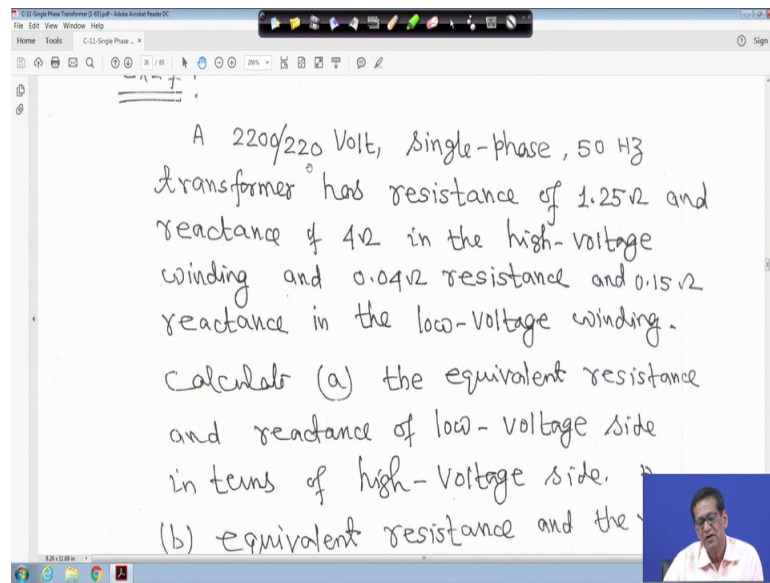 C-11-Single Phase Transformer [1-65].pdf - Adobe Acrobat Reader DC
File Edit View Window Help
Home Tools C-11-Single Phase ... × Sign
26 / 65 200%
A 2200/220 Volt, single-phase, 50 Hz
transformer has resistance of 1.25Ω and
reactance of 4Ω in the high-voltage
winding and 0.04Ω resistance and 0.15Ω
reactance in the low-voltage winding.
Calculate (a) the equivalent resistance
and reactance of low-voltage side
in terms of high-voltage side.
(b) equivalent resistance and the
8.26 x 11.69 in